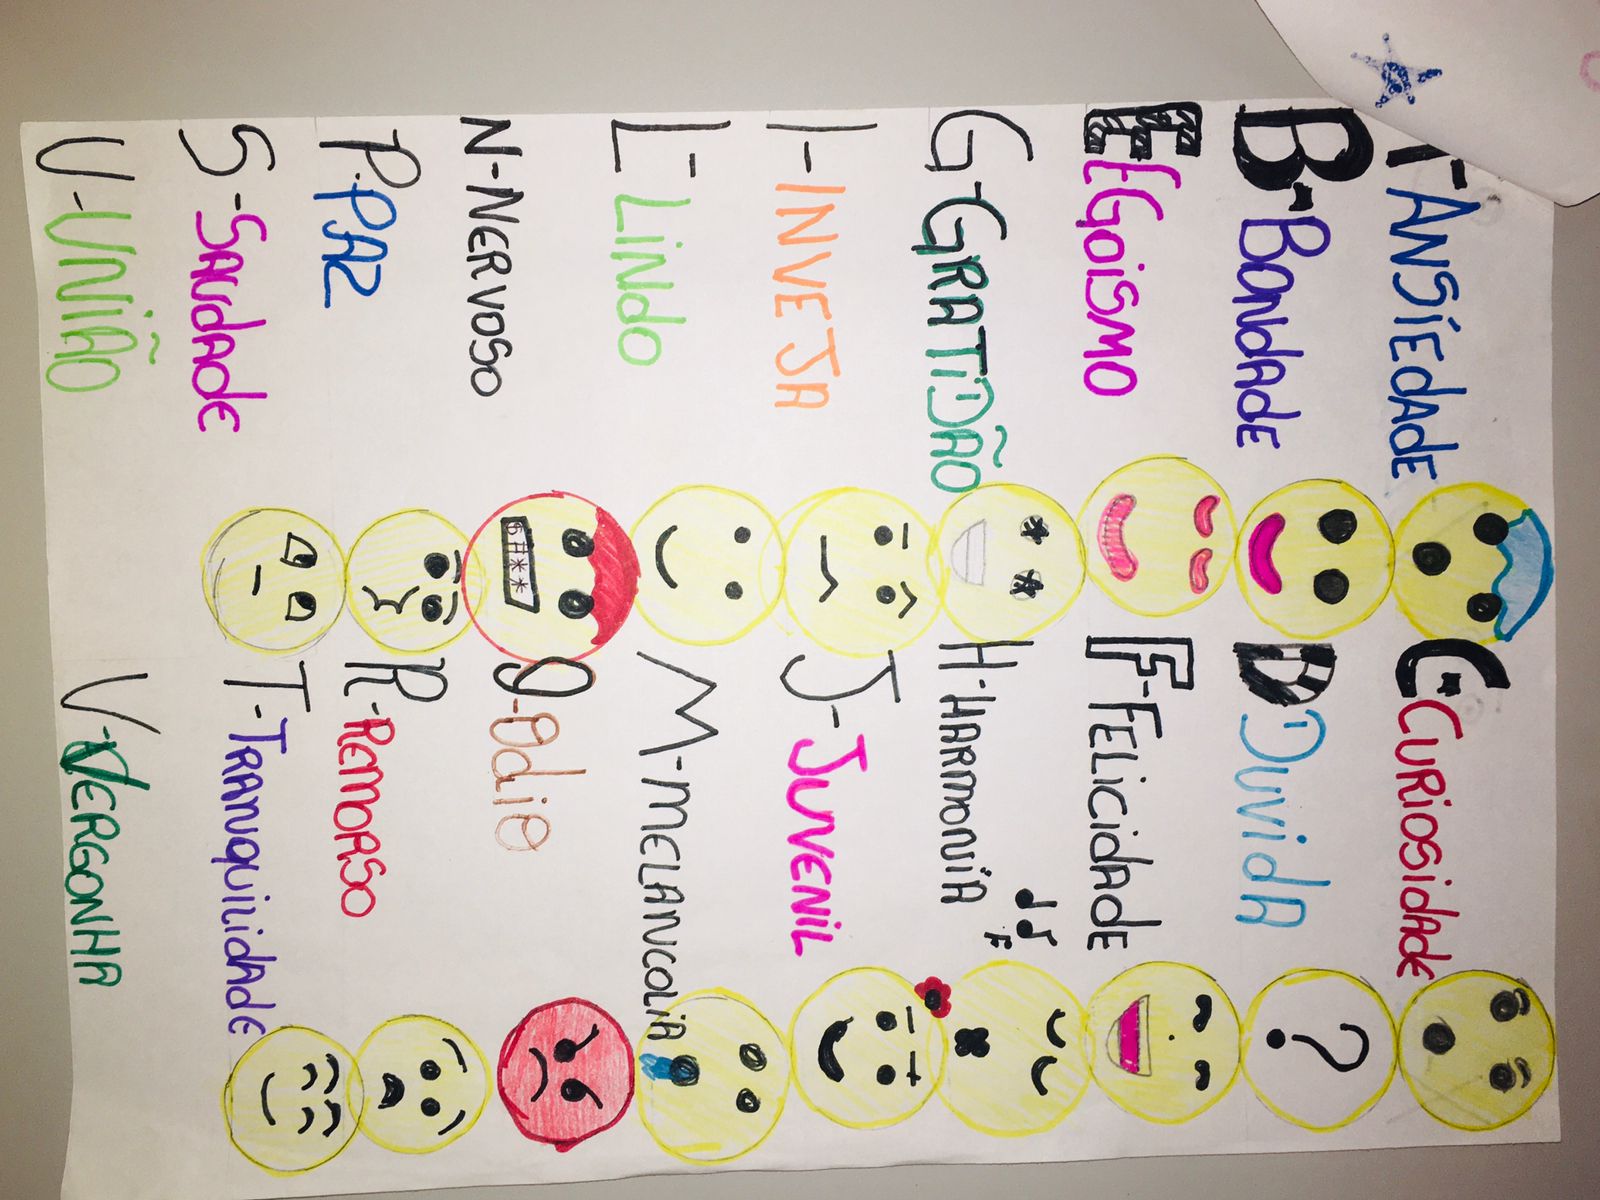 A-ANSÍEDADE
C-CURIOSIdAdE
B-BONdAdE
D DUVIdA
?
E EGOISMO
F-FELICIdAdE
G-GRATIDÃO
H-HARMONIA
I-INVEJA
J-JUVENIL
L-LINdO
M-MELANCOLIA
N-NERVOSO
$#***
O-Odio
P-PAZ
R-REMORSO
S-SAUdAdE
T-TRANQUILIdAdE
U-UNIÃO
V-VERGONHA